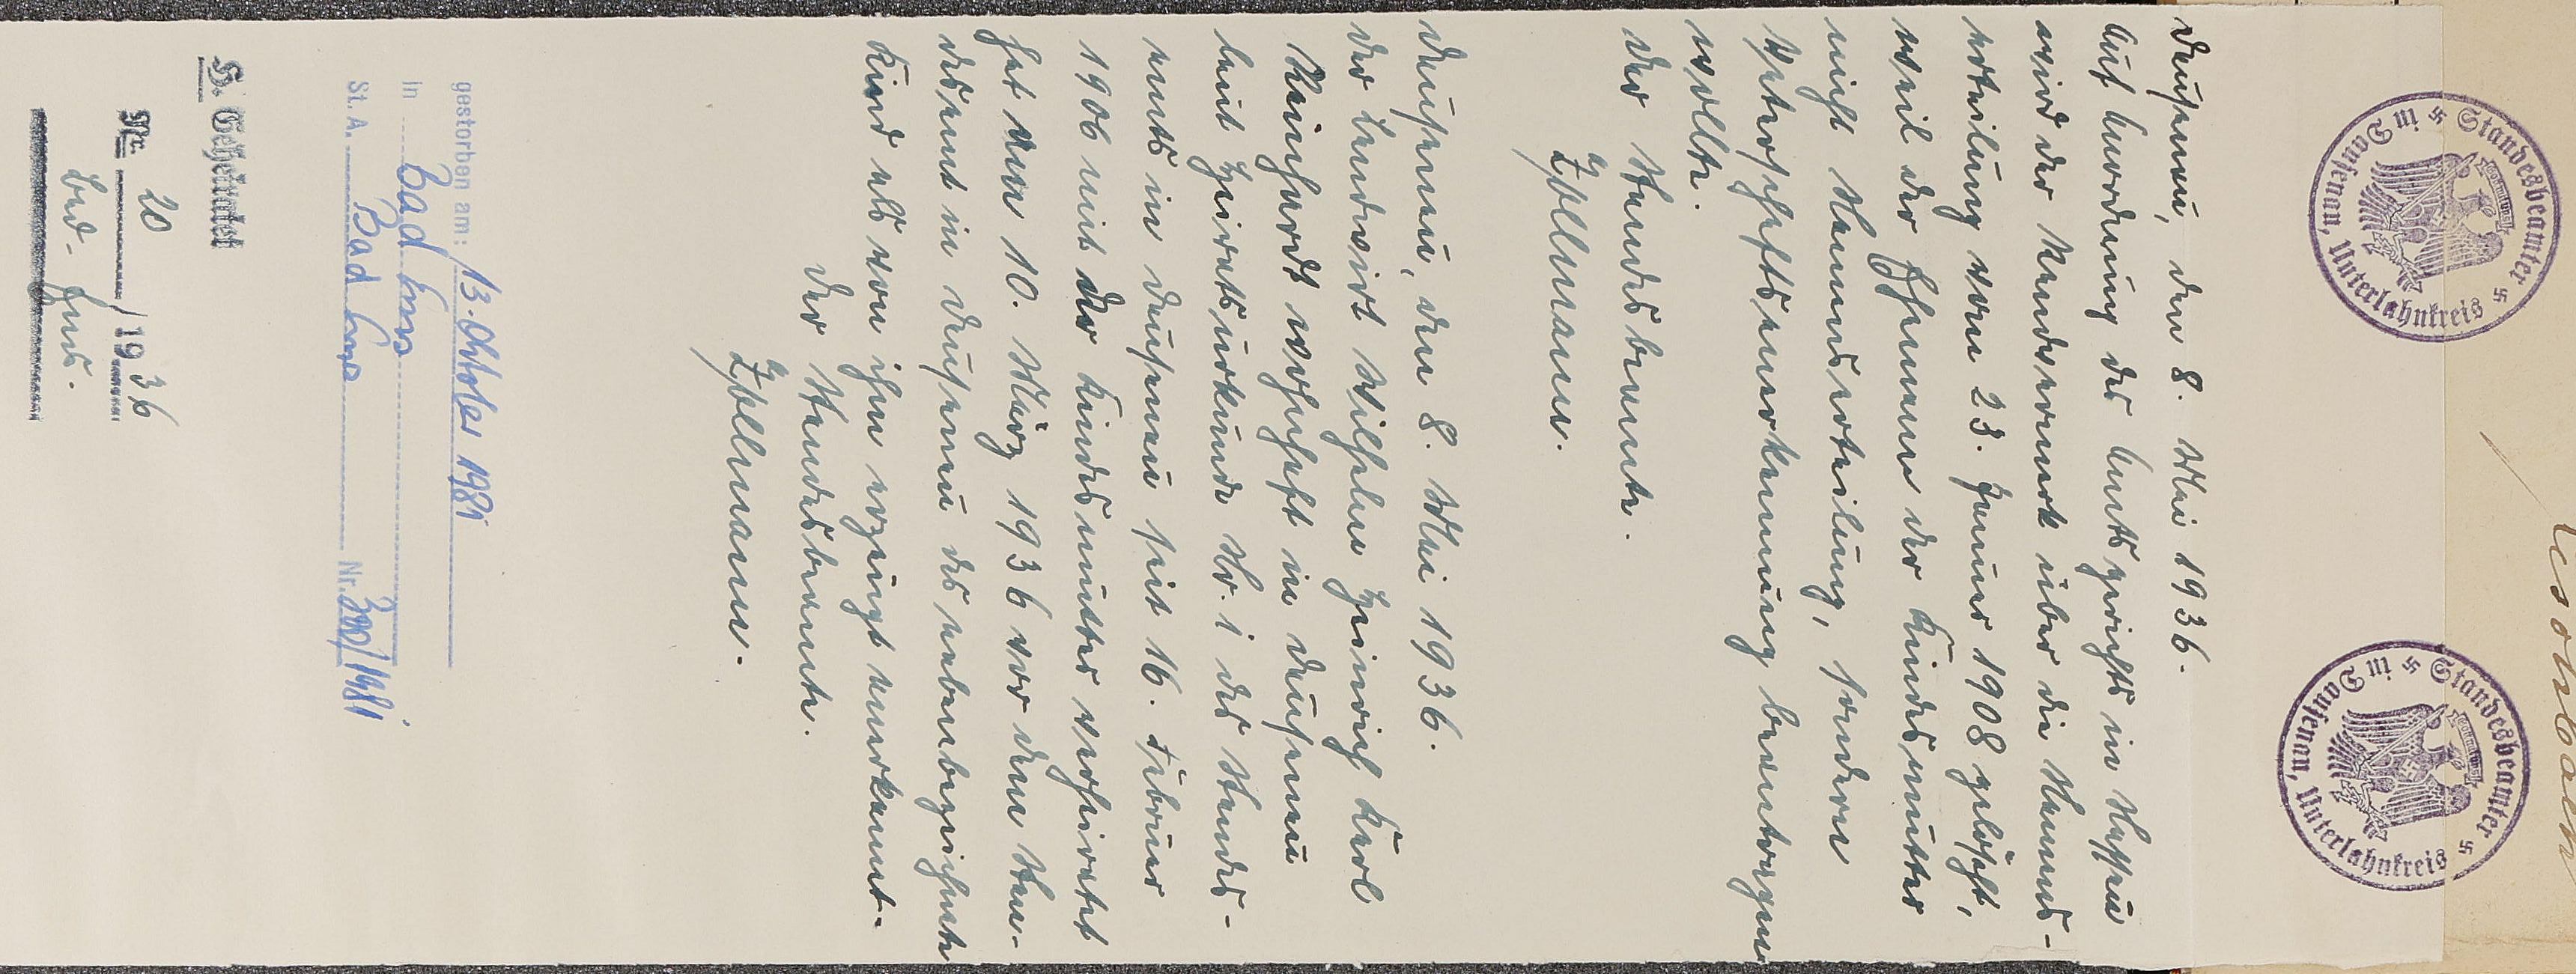 Standesbeamter
in Dausenau, Unterlahnkreis
Standesbeamter
in Dausenau, Unterlahnkreis
Dausenau, den 8. Mai 1936.
Auf Anordnung des Amtsgerichts in Nassau
wird der Randvermerk über die Namens-
erteilung vom 23. Januar 1908 gelöscht,
weil der Ehemann der Kindesmutter
nicht Namenserteilung, sondern
Vaterschaftsanerkennung beantragen
wollte.
Der Standesbeamte.
Dausenau, den 8. Mai 1936.
Der Landwirt Wilhelm Heinrich Karl
wohnhaft in Dausenau
laut Heiratsurkunde Nr. 1 des Standes-
amts in Dausenau seit 16. Februar
1906 mit der Kindesmutter verheiratet
hat am 10. März 1936 vor dem Stan-
desamt in Dausenau das nebenbezeichnete
Kind als von ihm erzeugt anerkannt.
Der Standesbeamte.
gestorben am: 13. Oktober 1981
in Bad Ems
St. A. Bad Ems Nr. 300/1981
H. Geheiratet
Nr. 20 / 1936